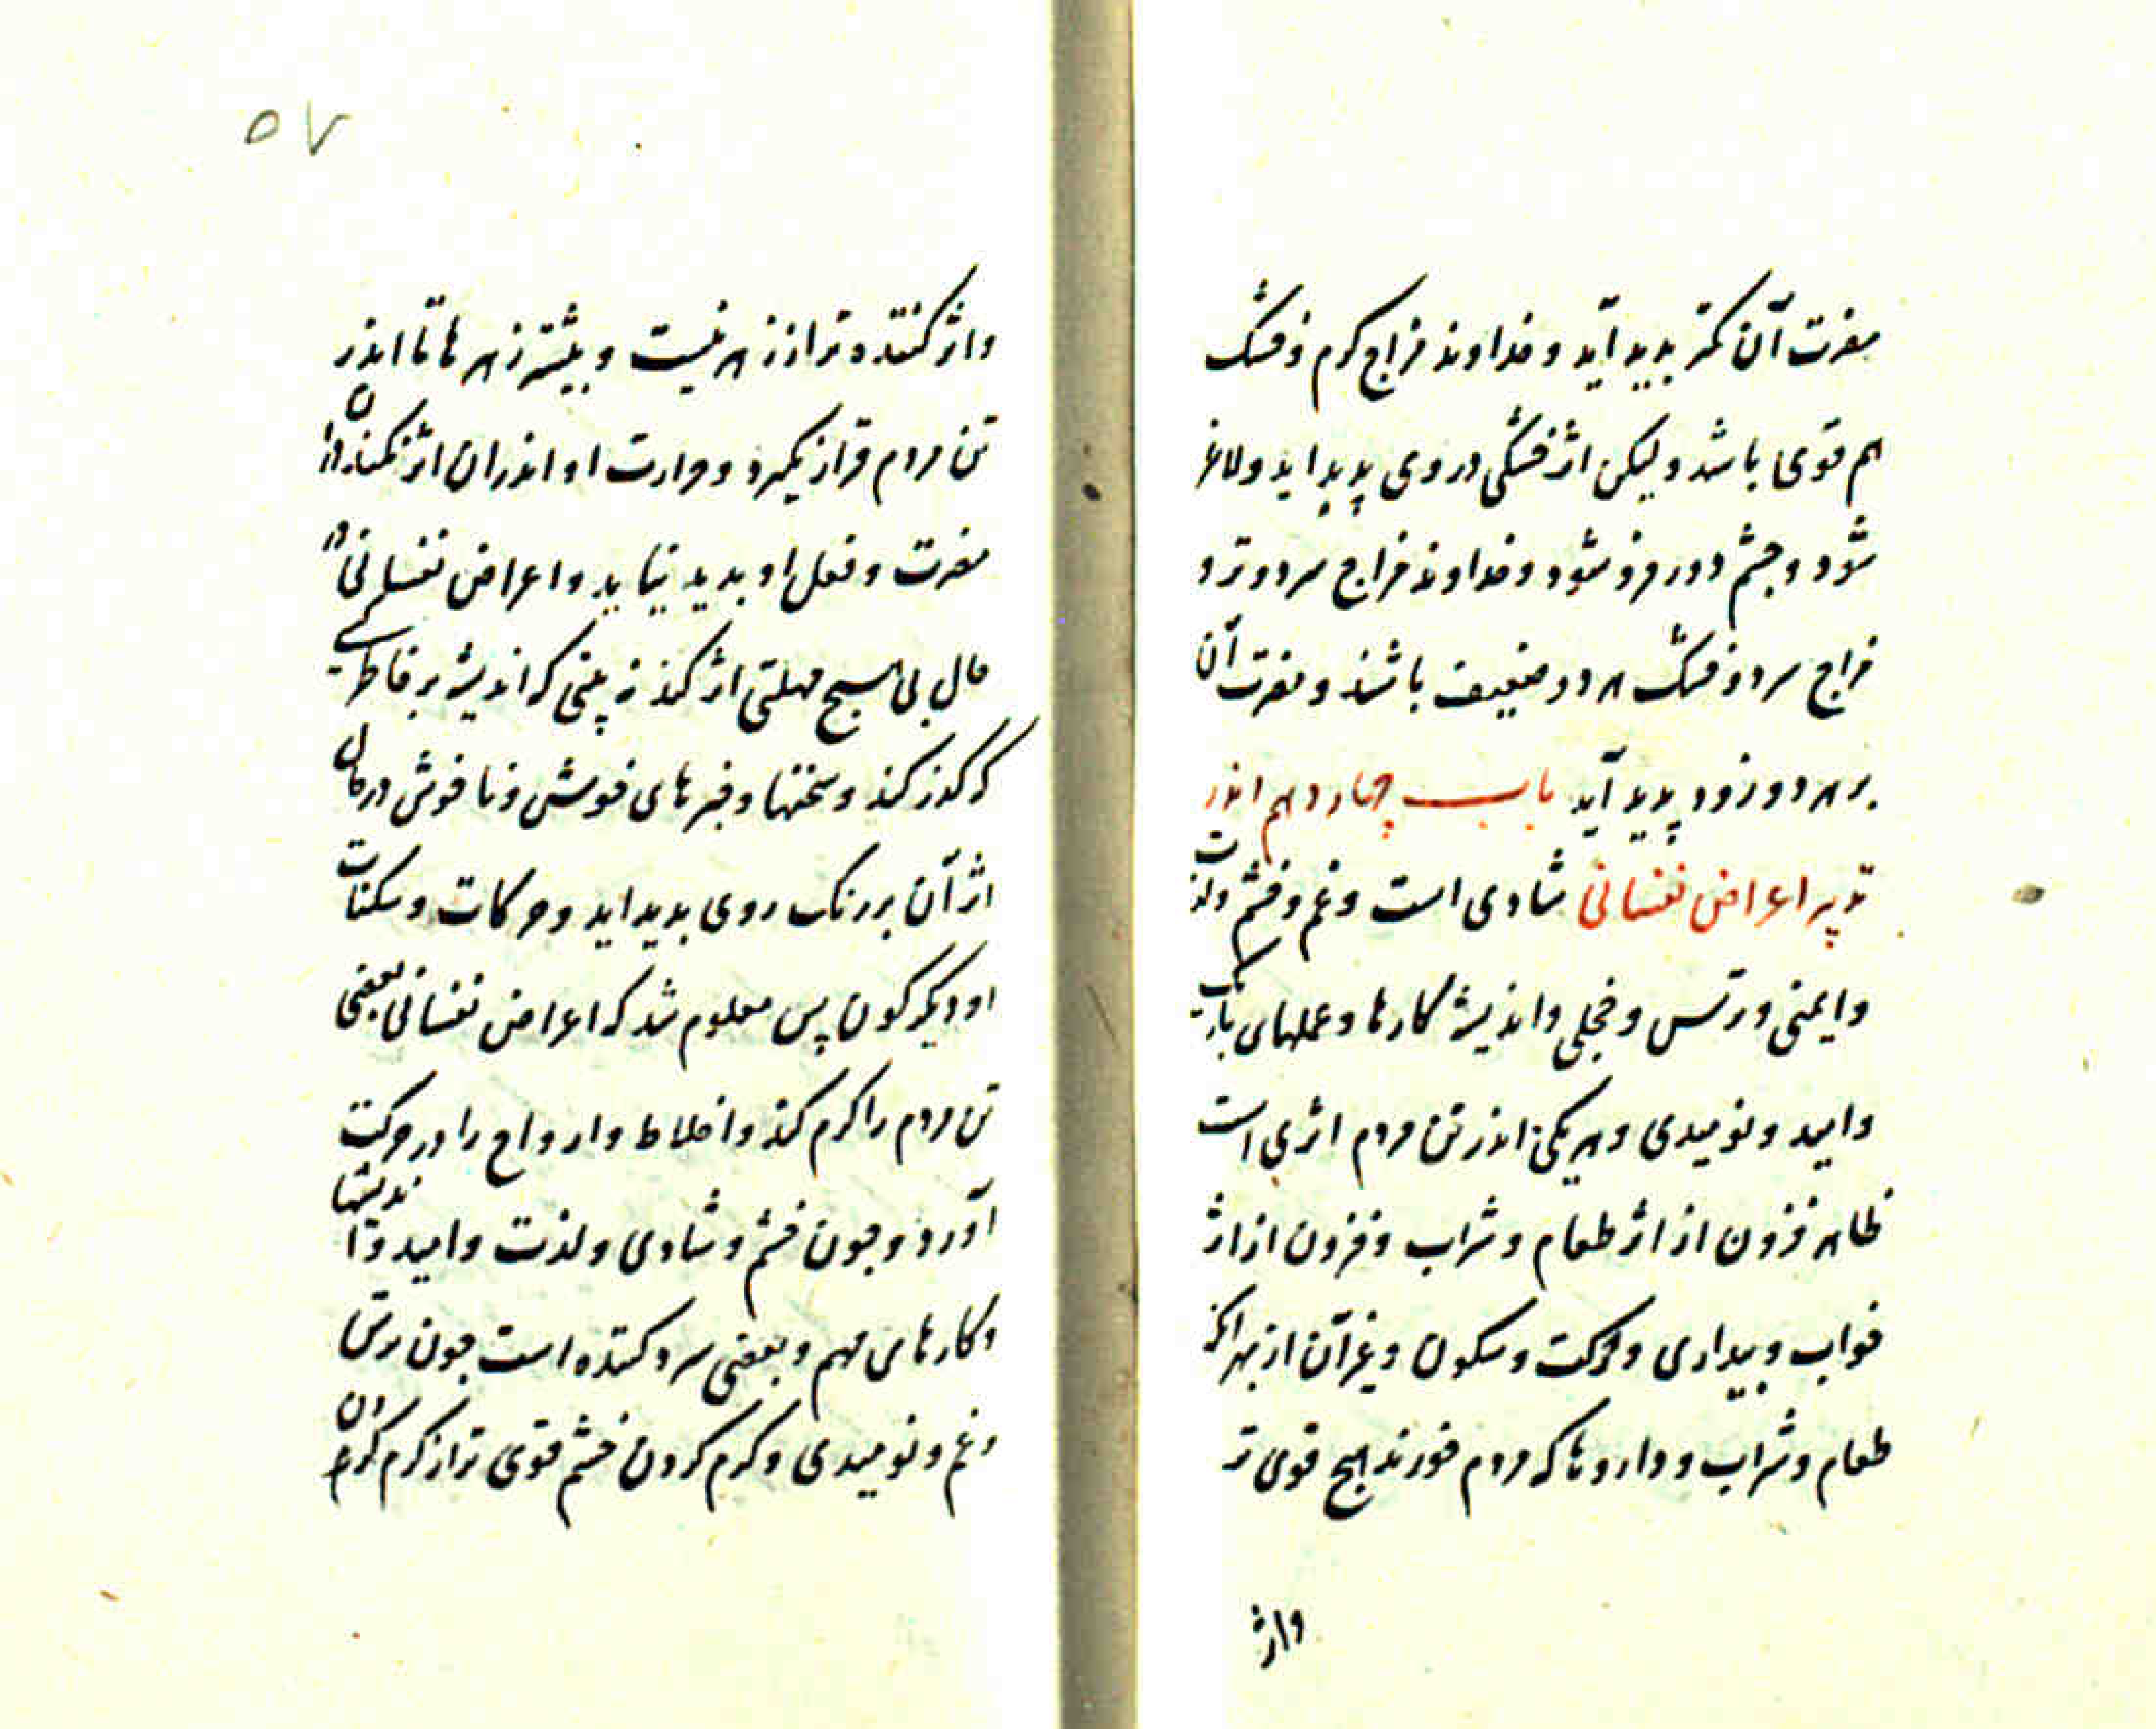 مضرت آن کمتر بدید آید و خداوند مزاج کرم و خشک
هم قوی باشد ولیکن اثر خشکی در وی پدید اید و لاغر
شود و چشم دور فرو شود و خداوند مزاج سرد و تر و
مزاج سرد و خشک هر دو ضعیف باشند و مضرت آن
بر هر دو زود پدید آید باب چهاردهم اندر
تدبیر اعراض نفسانی شادی است و غم و خشم و لذت
و ایمنی و ترس و خجلی و اندیشه کارها و عملهای باریک
و امید و نومیدی و هر یکی اندر تن مردم اثری است
ظاهر فزون از اثر طعام و شراب و فزون از اثر
خواب و بیداری و حرکت و سکون و غیر آن از بهر انکه
طعام و شراب و داروها که مردم خورند هیچ قوی تر
و اثر
۵۷
و اثر کننده تر از زهر نیست و بیشتر زهرها تا اندر
تن مردم قرار نگیرد و حرارت او اندران اثر نکند ان
مضرت و فعل او بدید نیاید و اعراض نفسانی در
حال بی هیچ مهلتی اثر کند نه بینی که اندیشه بر خاطر کسی
که گذر کند و سخنها و خبرهای خوش و ناخوش در حال
اثر آن بر رنک روی بدید اید و حرکات و سکنات
او دیکر کون پس معلوم شد که اعراض نفسانی بعضی
تن مردم را کرم کند و اخلاط و ارواح را در حرکت
آورد و جون خشم و شادی و لذت و امید و اندیشها
و کارهای مهم و بعضی سرد کننده است جون ترس
و غم و نومیدی و کرم کردن خشم قوی تر از کرم کردن